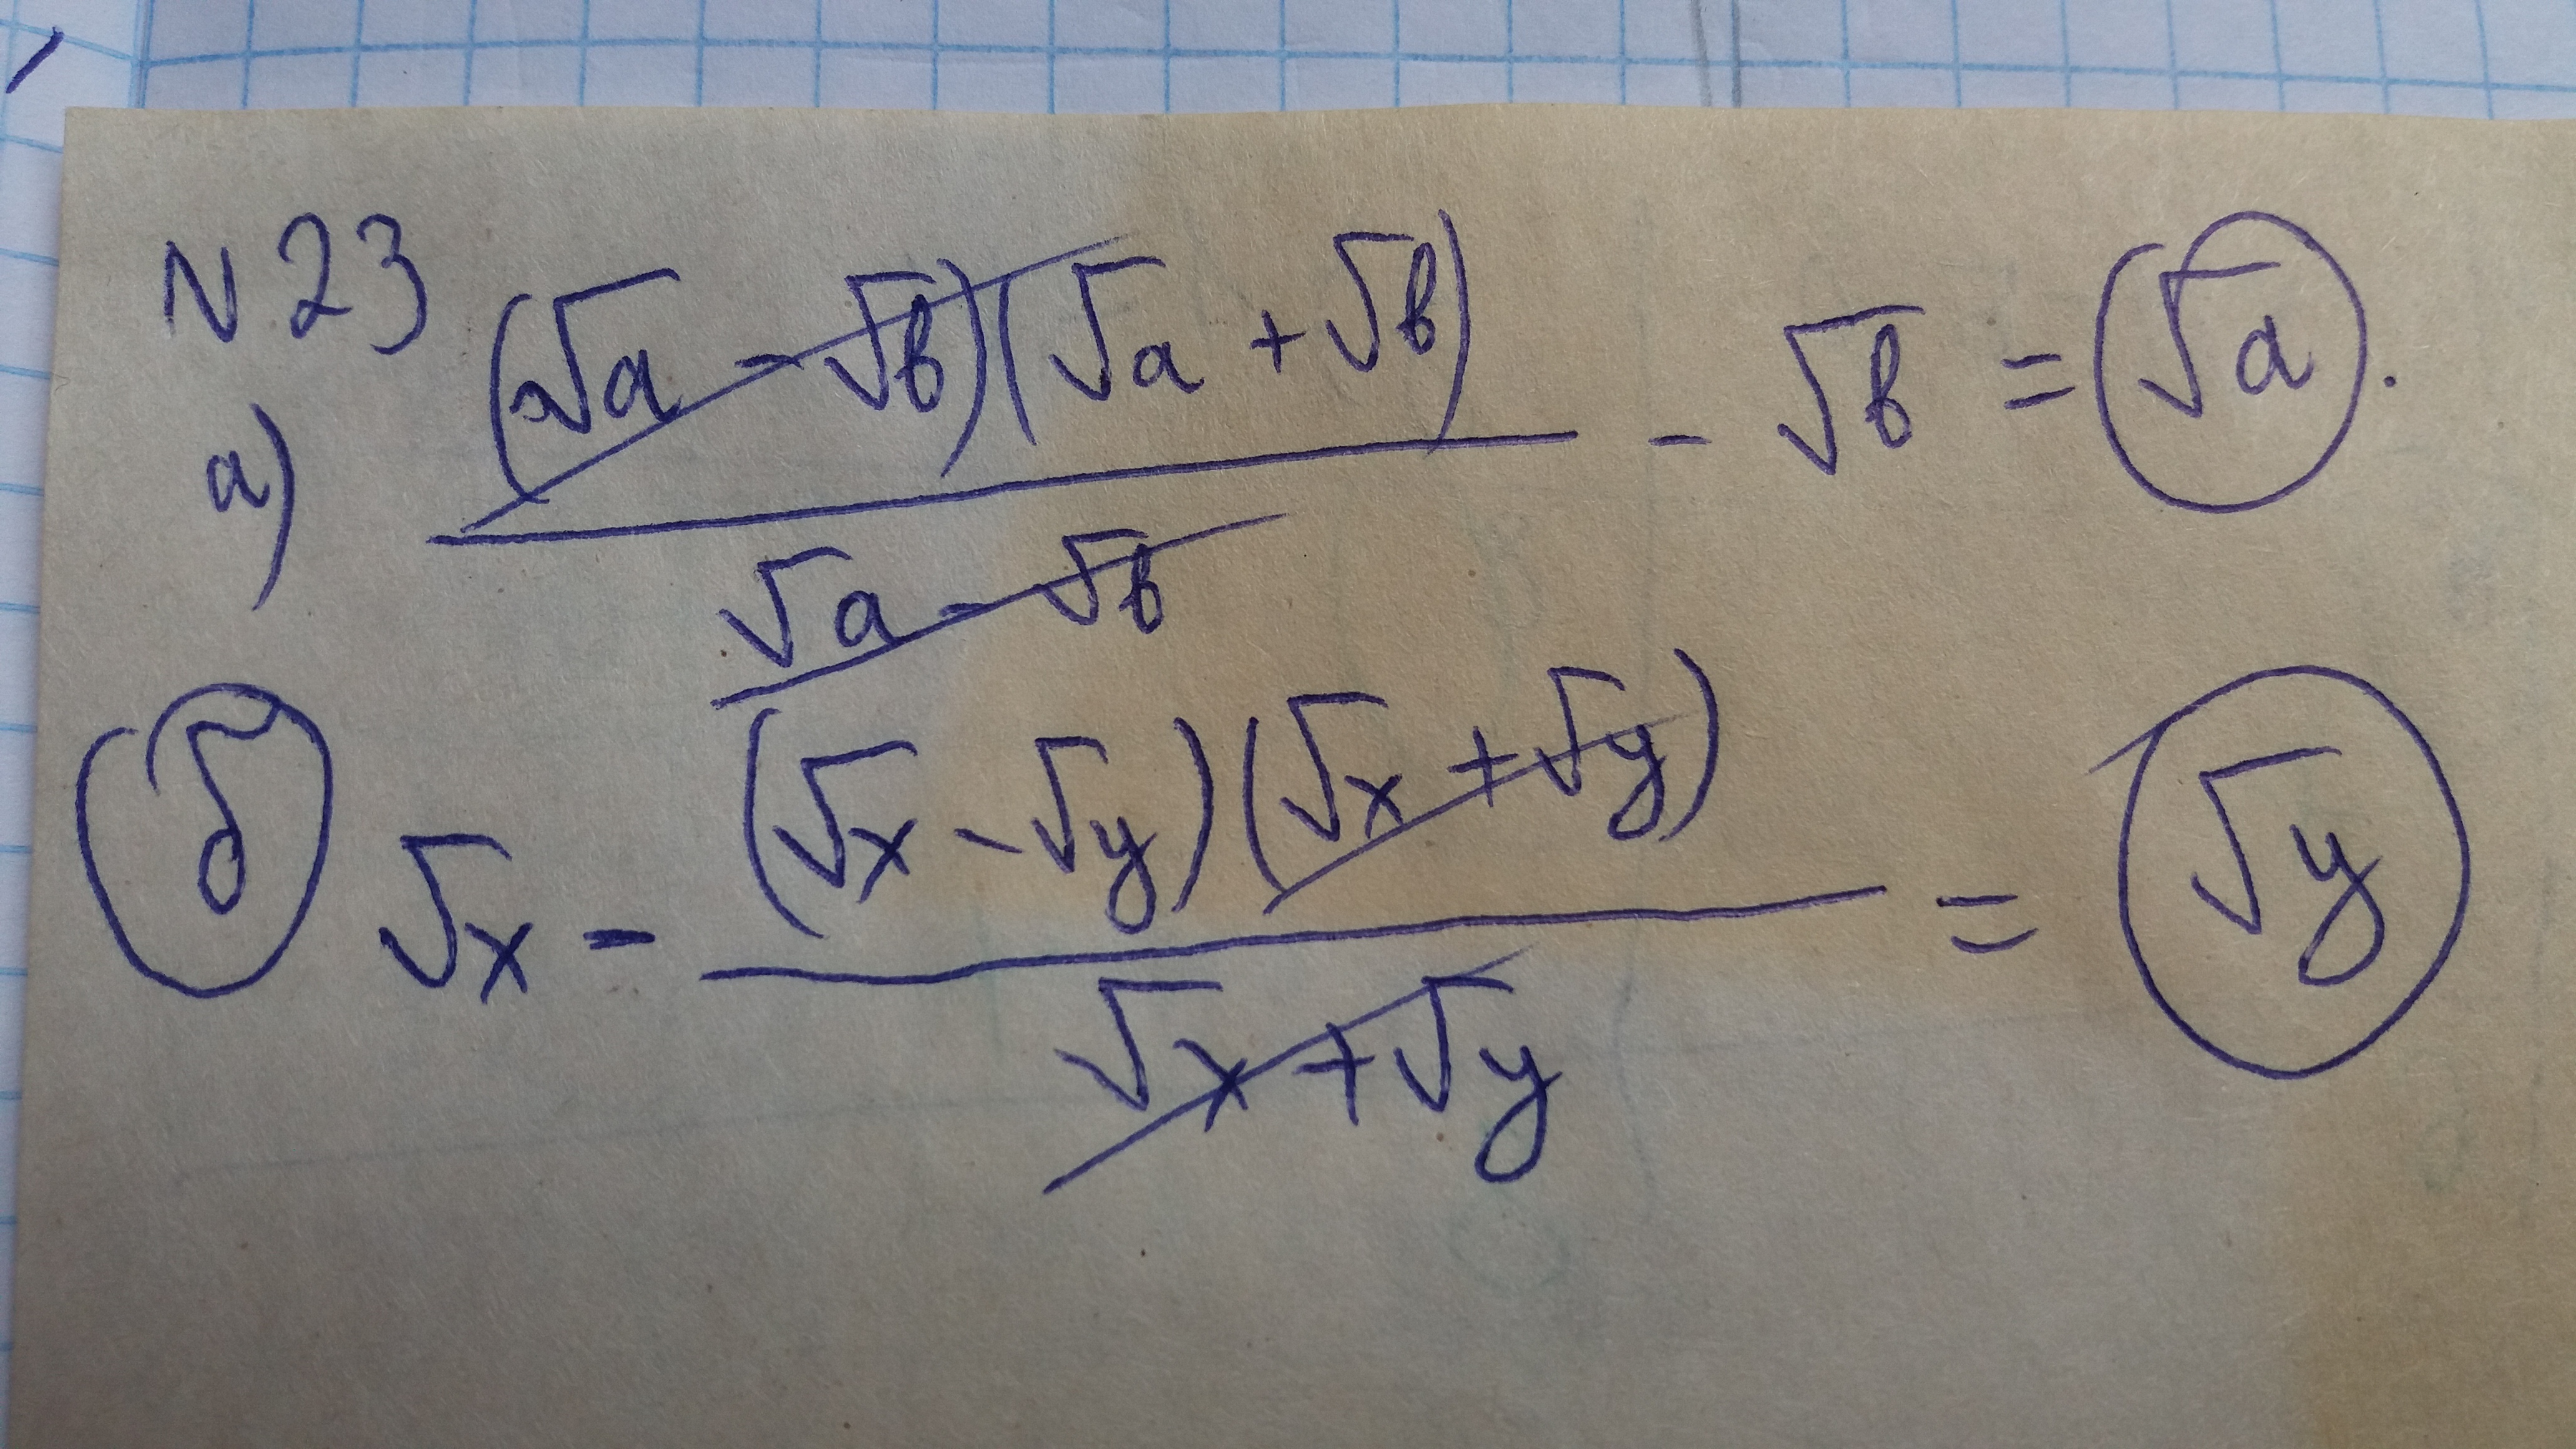 N 23
а) (√a - √b)(√a + √b) / √a - √b - √b = √a.
б √x - (√x - √y)(√x + √y) / √x + √y = √y